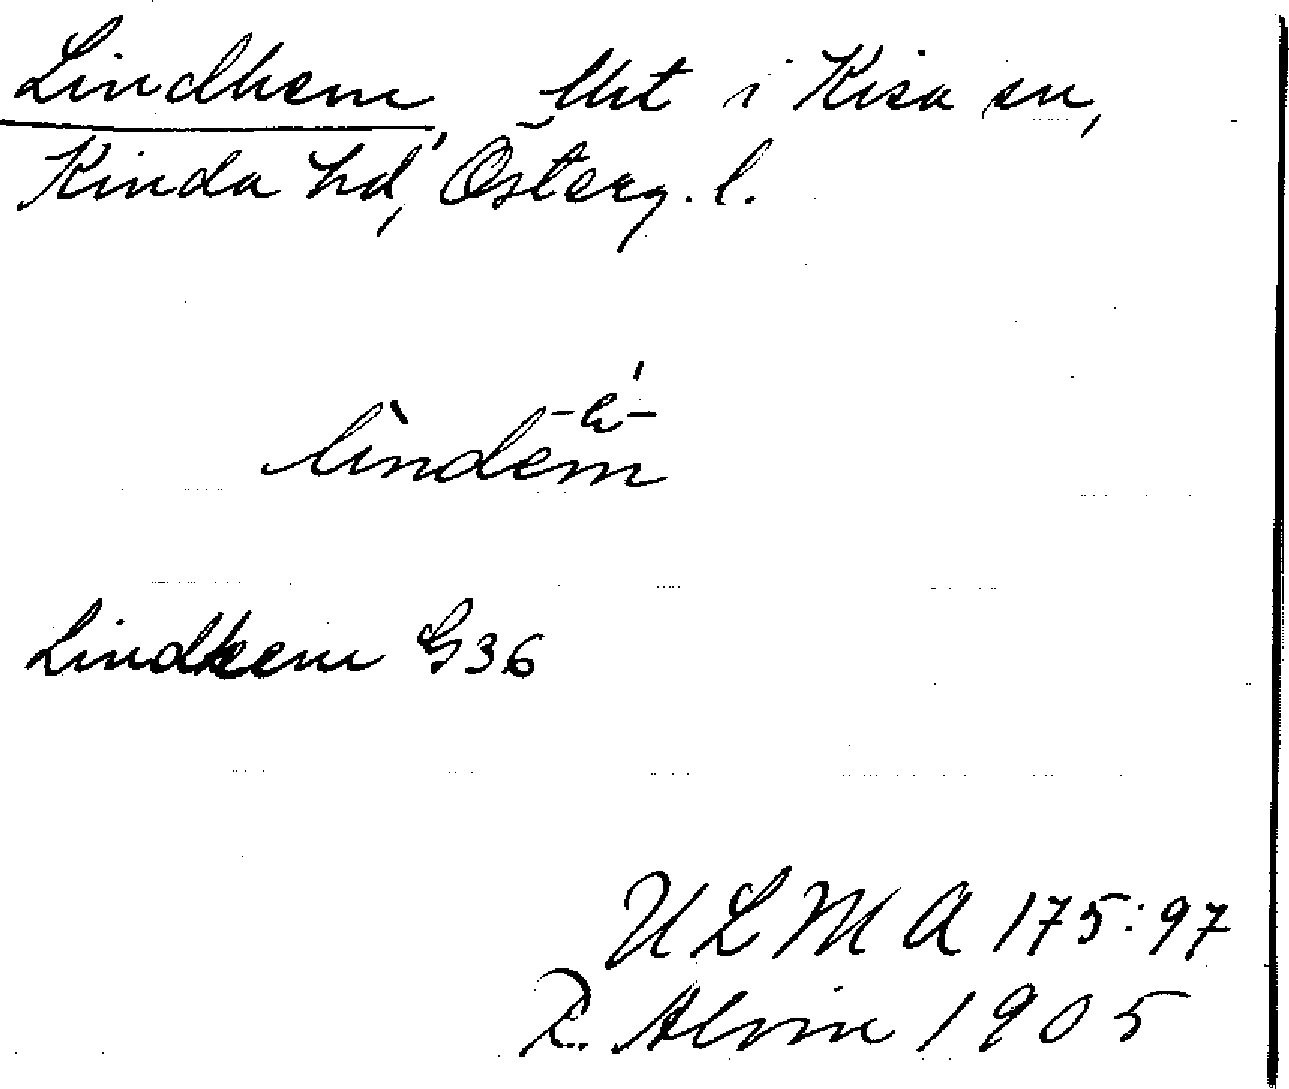 Lindhem, tht i Kisa sn,
Kinda hd, Österg. l.
-è-
lìndem
Lindhem G36
ULMA 175:97
R. Alvin 1905